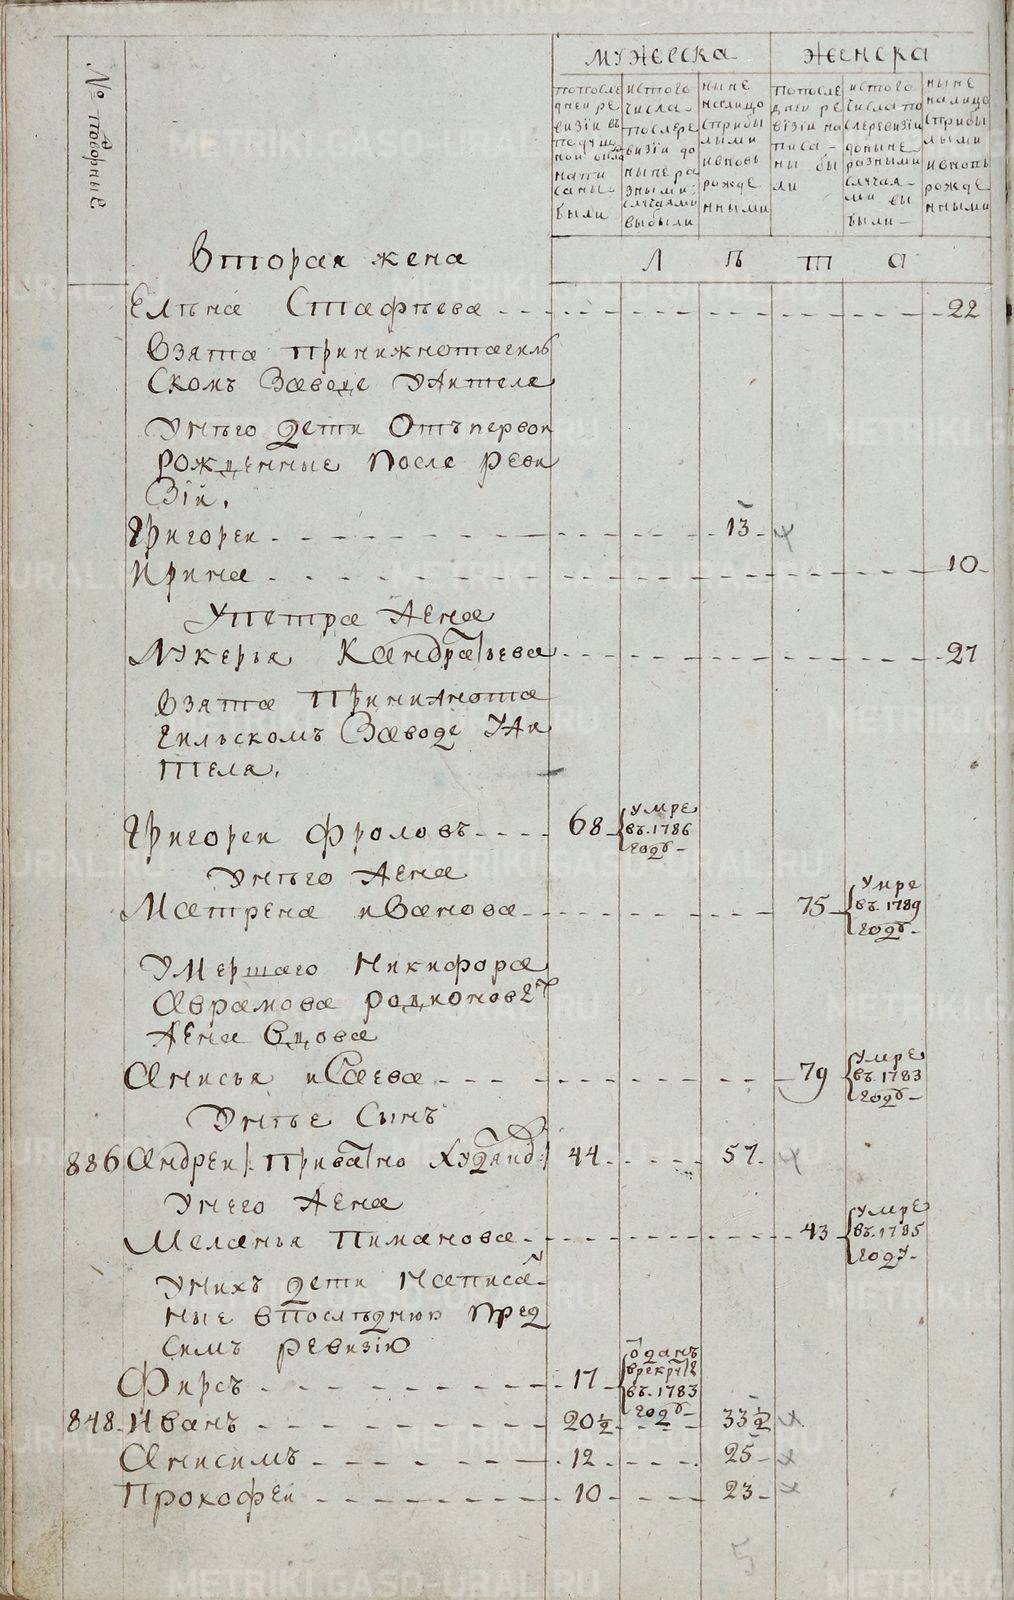 № подворные
мужеска
женска
попосле
дней ре
визiи въ
написаны
были
истого
числа
послере
визiи до
ныне ра
зными
случаями
выбыли
ныне
налицо
сприбы
лыми
ивновь
рожде
нными
попосле
дней ре
визiи на
писа-
ны бы
ли
истого
числа по
слеревизiи
доныне
разными
случая-
ми вы
были-
ныне
налицо
сприбы
лыми
ивновь
рожде
нными
Л ѣ т а
Вторая жена
Елѣна Стафѣева 22
Взята принижнотагиль
скомъ Заводе Ужителя
Унѣго дети Отъ первои
рожденные После реви
зiи.
Григореи 13
Ирина 10
Упетра жена
Лукерья Кандратьева 27
взята принижнота
гильскомъ Заводе Ужи
теля.
Григореи Фроловъ 68 умре
въ. 1786
годъ
Унѣго жена
Матрена иванова 75 умре
въ. 1789
годъ
умершаго Никифора
Аврамова родионов
жена вдова
Анисья исаева 79 умре
въ. 1783
годъ
Унѣе Сынъ
886 Андреи приватно 44 57
Унего жена
Меланья Пиманова 43 умре
въ. 1785
году
Унихъ дети написа
ные впоследнюю пред
симъ ревизiю
Фирсъ 17 Оданъ
въ. 1783
годъ
848 Иванъ 20½ 33½
Анисимъ 12 25
Прокофеи 10 23
5
METRIKI.GASO-URAL.RU